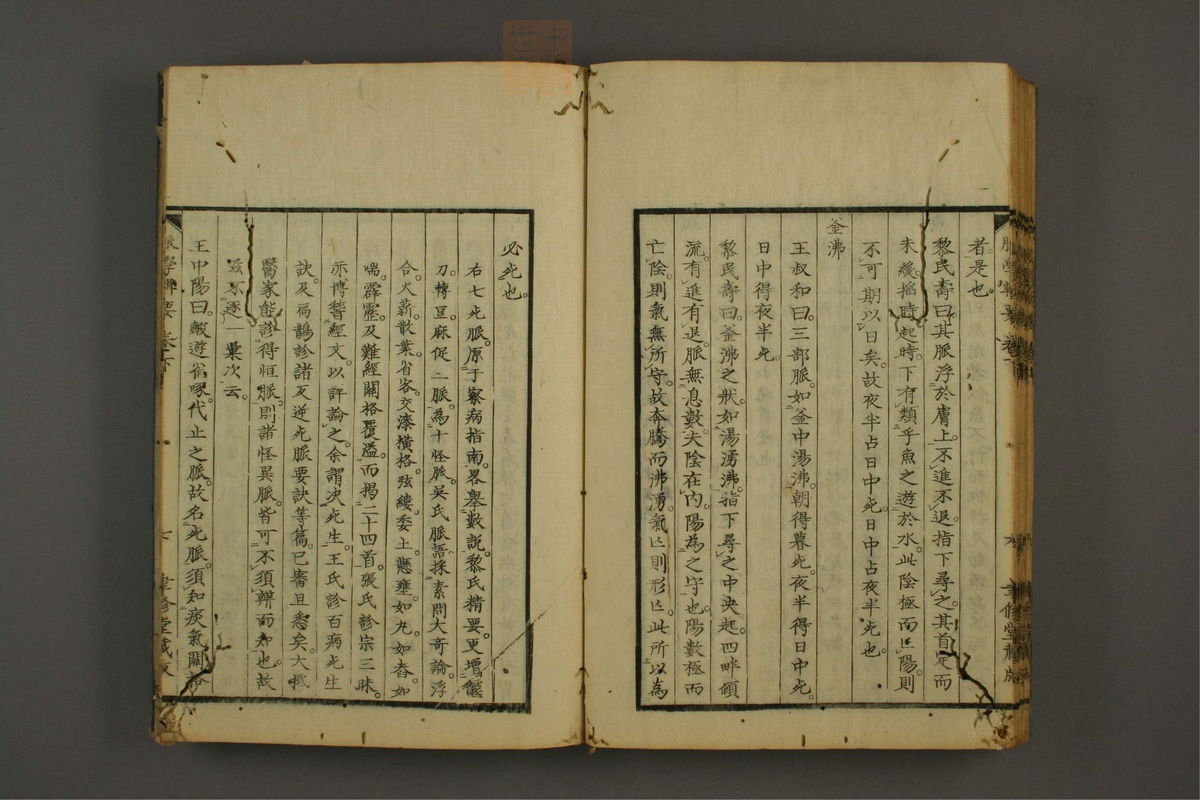 者是也
黎民壽曰其脈浮於膚上不進不退指下尋之其首定而
未緩搖時起時下有類乎魚之遊於水此陰極而亡陽則
不可期以日矣故夜半占日中死日中占夜半死也
釜沸
王叔和曰三部脈如釜中湯沸朝得暮死夜半得日中死
日中得夜半死
黎民壽曰釜沸之狀如湯湧沸指下尋之中央起四畔傾
流有進有退脈無息數夫陰在內陽為之守也陽數極而
亡陰則氣無所守故奔騰而沸湧氣亡則形亡此所以為
必死也
右七死脈原于察病指南畧舉數說黎氏精要更增偃
刀轉豆麻促二脈為十怪脈吳氏脈語採素問大奇論浮
合火薪散葉省客交漆橫格弦縷委土懸壅如丸如舂如
喘霹靂及難經關格覆溢而揭二十四首張氏診宗三昧
亦博譣經文以評論之余謂決死生王氏診百病死生
訣及扁鵲診諸反逆死脈要訣等篇已審且悉矣大抵
醫家能診得恒脈則諸怪異脈皆可不須辨而知也故
茲不逐一彙次云
王中陽曰蝦遊雀啄代止之脈故名死脈須知痰氣關格
脈學輯要 卷下
七
聿修堂藏版